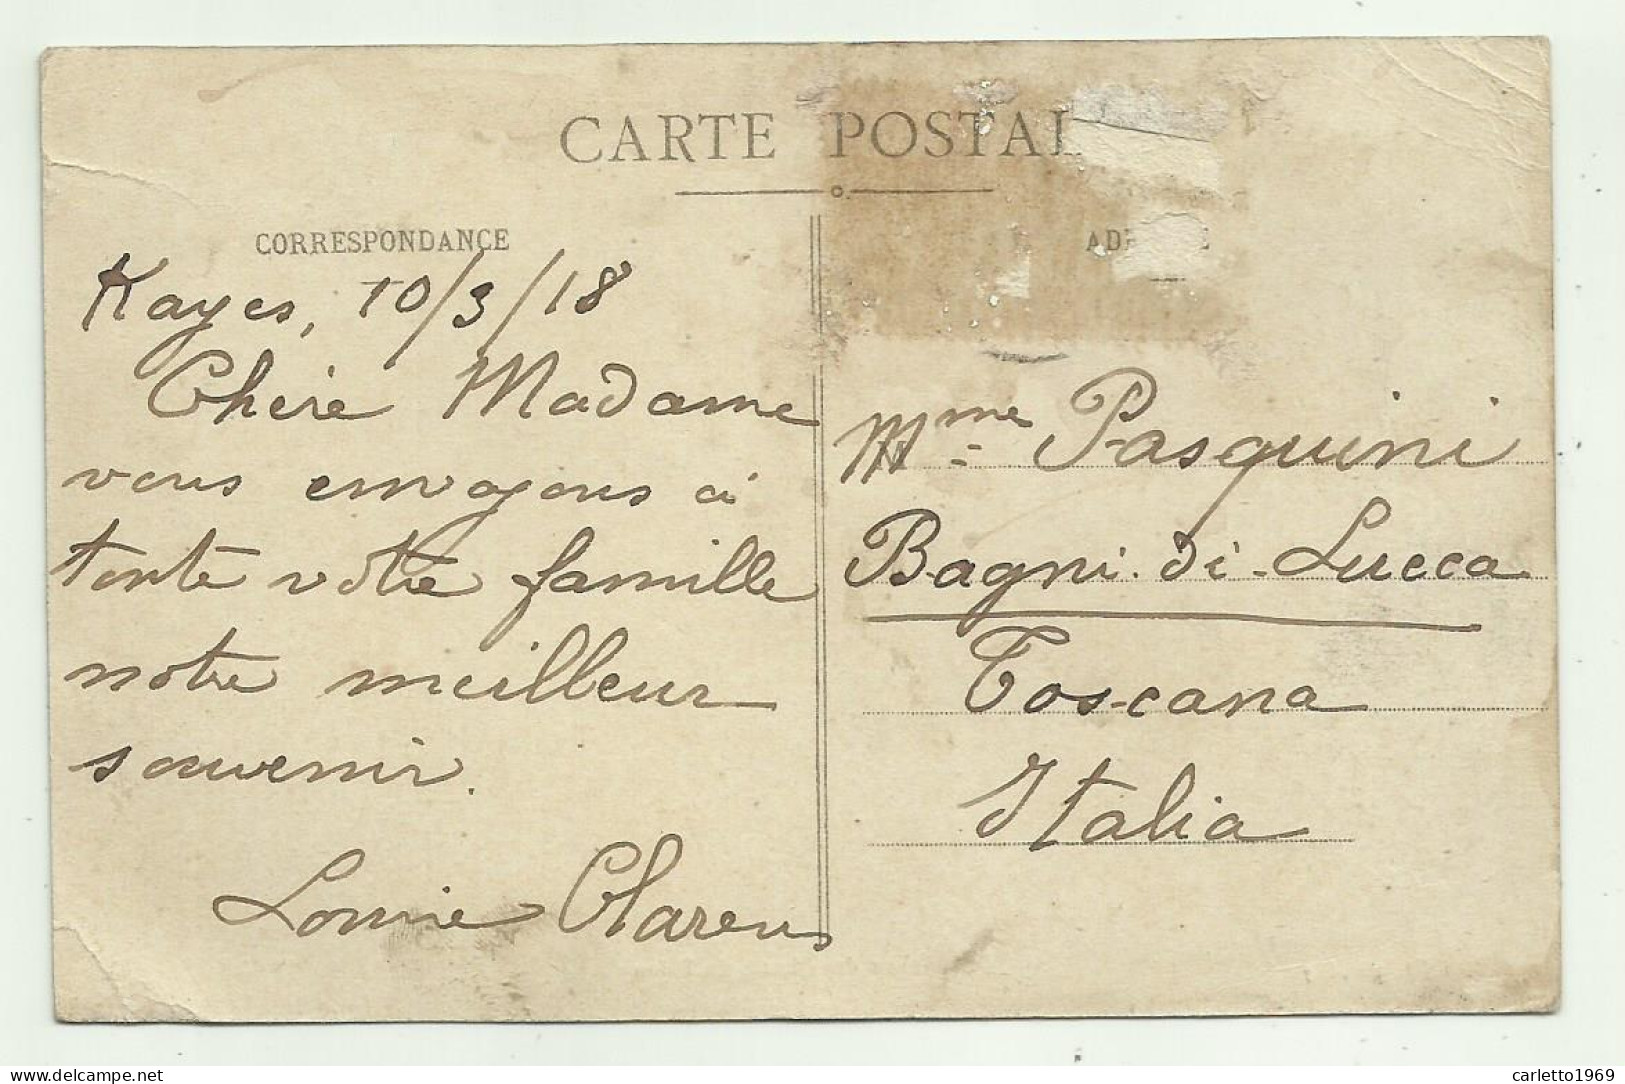 CARTE POSTAL
CORRESPONDANCE
Kayes, 10/3/18
Chère Madame
vous envoyons à
toute votre famille
notre meilleur
souvenir.
Louise Clarens
Mme Pasquini
Bagni di Lucca
Toscana
Italia
delcampe.net
carletto1969